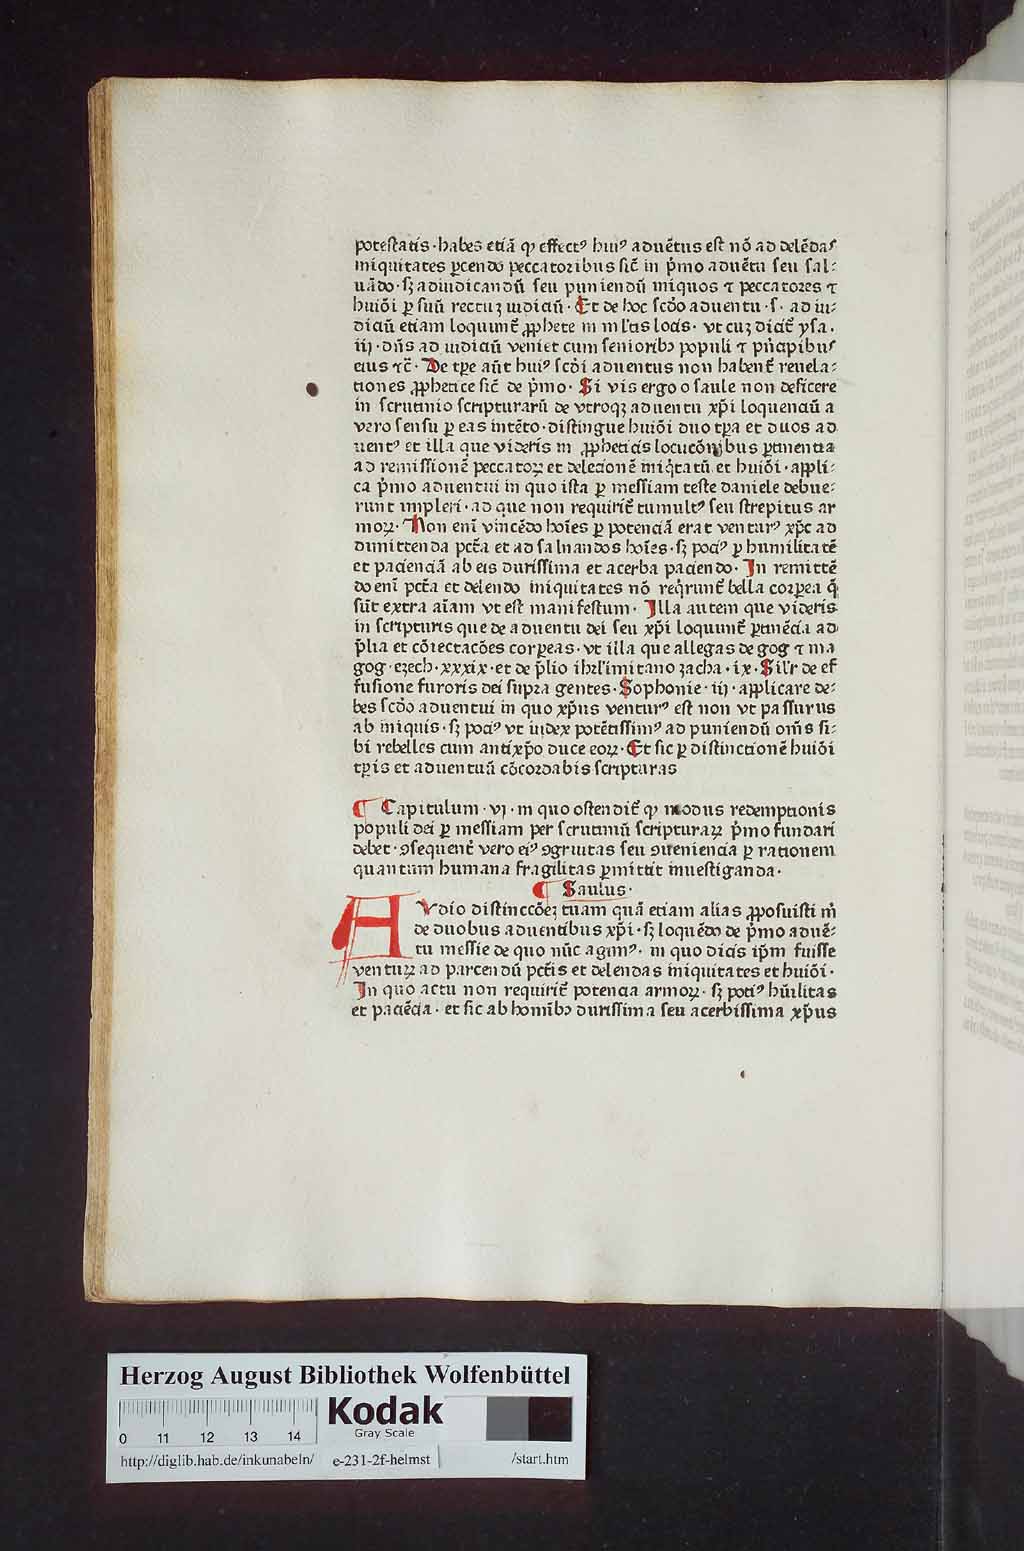 potestatis · habes etiā ꝙ effectꝰ huiꝰ aduētus est nō ad delēdas
iniquitates ꝑcendo peccatoribus sic̄ in p̄mo aduētu seu sal⸗
uādo · sꝫ adiudicandū seu puniendū iniquos ⁊ peccatores ⁊
huiōi ꝑ suū rectuꝫ iudiciū · Et de hoc scd̄o aduentu · s · ad iu⸗
diciū etiam loquunt̄ ꝓphete in ml̄tis locis · vt cuꝫ dicit̄ ysa ·
iij · dn̄s ad iudiciū veniet cum seniorib⁊ populi ⁊ pn̄cipibus
eius ⁊c̄ · De tꝑe aūt huiꝰ scd̄i aduentus non habent̄ reuela⸗
tiones ꝓphetice sic̄ de p̄mo · Si vis ergo o saule non deficere
in scrutinio scripturarū de vtroqꝫ aduentu xp̄i loquenciū a
vero sensu ꝑ eas intēto · distingue huiōi duo tꝑa et duos ad
uentꝰ et illa que videris in ꝓpheticis locucōnibus ꝑtinentia
ad remissionē peccatoꝝ et delecionē iniq̄tatū et huiōi · appli⸗
ca p̄mo aduentui in quo ista ꝑ messiam teste daniele debue⸗
runt impleri · ad que non requirit̄ tumultꝰ seu strepitus ar
moꝝ · Non eni vincēdo hoīes ꝑ potenciā erat venturꝰ xp̄c ad
dimittenda pctā et ad saluandos hoīes · sꝫ pociꝰ ꝑ humilitatē
et pacienciā ab eis durissima et acerba paciendo · In remittē
do eni pctā et delendo iniquitates nō req̄runt̄ bella corꝑea q̄
sūt extra aīam vt est manifestum · Illa autem que videris
in scripturis que de aduentu dei seu xp̄i loquunt̄ ꝑtinēcia ad
p̄lia et cōiectacōes corꝑeas · vt illa que allegas de gog ⁊ ma
gog · eꝫech · xxxix · et de p̄lio ihrl̄imitano ꝫacha · ix · Sil̄r de ef
fusione furoris dei supra gentes · Sophonie · iij · applicare de⸗
bes scd̄o aduentui in quo xp̄us venturꝰ est non vt passurus
ab iniquis · sꝫ pociꝰ vt iudex potētissimꝰ ad puniendū om̄s si⸗
bi rebelles cum antixp̄o duce eoꝝ · Et sic ꝑ distinctionē huiōi
tꝑis et aduentuū cōcordabis scripturas
¶ Capitulum · vj · in quo ostendit̄ ꝙ modus redemptionis
populi dei ꝑ messiam per scrutiniū scripturaꝝ p̄mo fundari
debet · ꝯsequent̄ vero eiꝰ ꝯgruitas seu ꝯueniencia ꝑ rationem
quantum humana fragilitas ꝑmittit inuestiganda ·
¶ Saulus ·
AVdio distinccōeꝫ tuam quā etiam alias ꝓposuisti m̄
de duobus aduentibus xp̄i · sꝫ loquēdo de p̄mo aduē⸗
tu messie de quo nūc agimꝰ · in quo dicis ip̄m fuisse
ventuꝝ ad parcendū pctīs et delendas iniquitates et huiōi ·
In quo actu non requirit̄ potencia armoꝝ · sꝫ potiꝰ hūilitas
et paciēcia · et sic ab homīb⁊ durissima seu acerbissima xp̄us
Herzog August Bibliothek Wolfenbüttel
Kodak
Gray Scale
0 11 12 13 14
http://diglib.hab.de/inkunabeln/ e-231-2f-helmst /start.htm